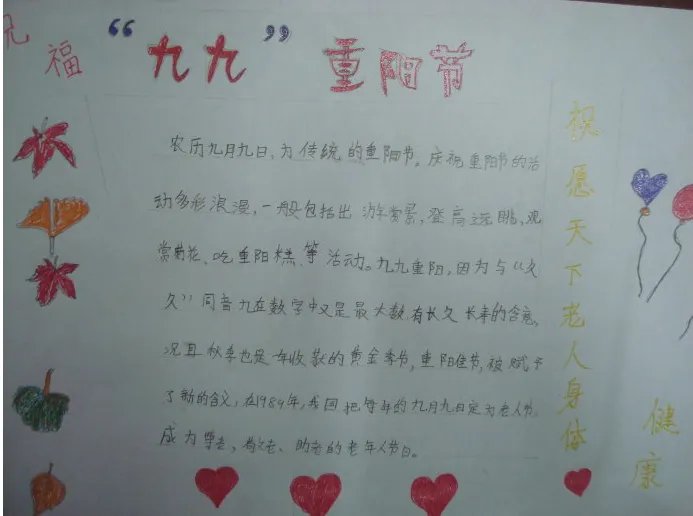 祝福
“九九” 重阳节
农历九月九日,为传统的重阳节。庆祝重阳节的活
动多彩浪漫,一般包括出游赏景,登高远眺,观
赏菊花、吃重阳糕等活动。九九重阳,因为与“久
久”同音九在数字中又是最大数,有长久长寿的含意,
况且秋季也是一年收获的黄金季节,重阳佳节,被赋予
了新的含义,在1989年,我国把每年的九月九日定为老人节
成为尊老、敬老、助老的老年人节日。
祝愿天下老人身体
健康